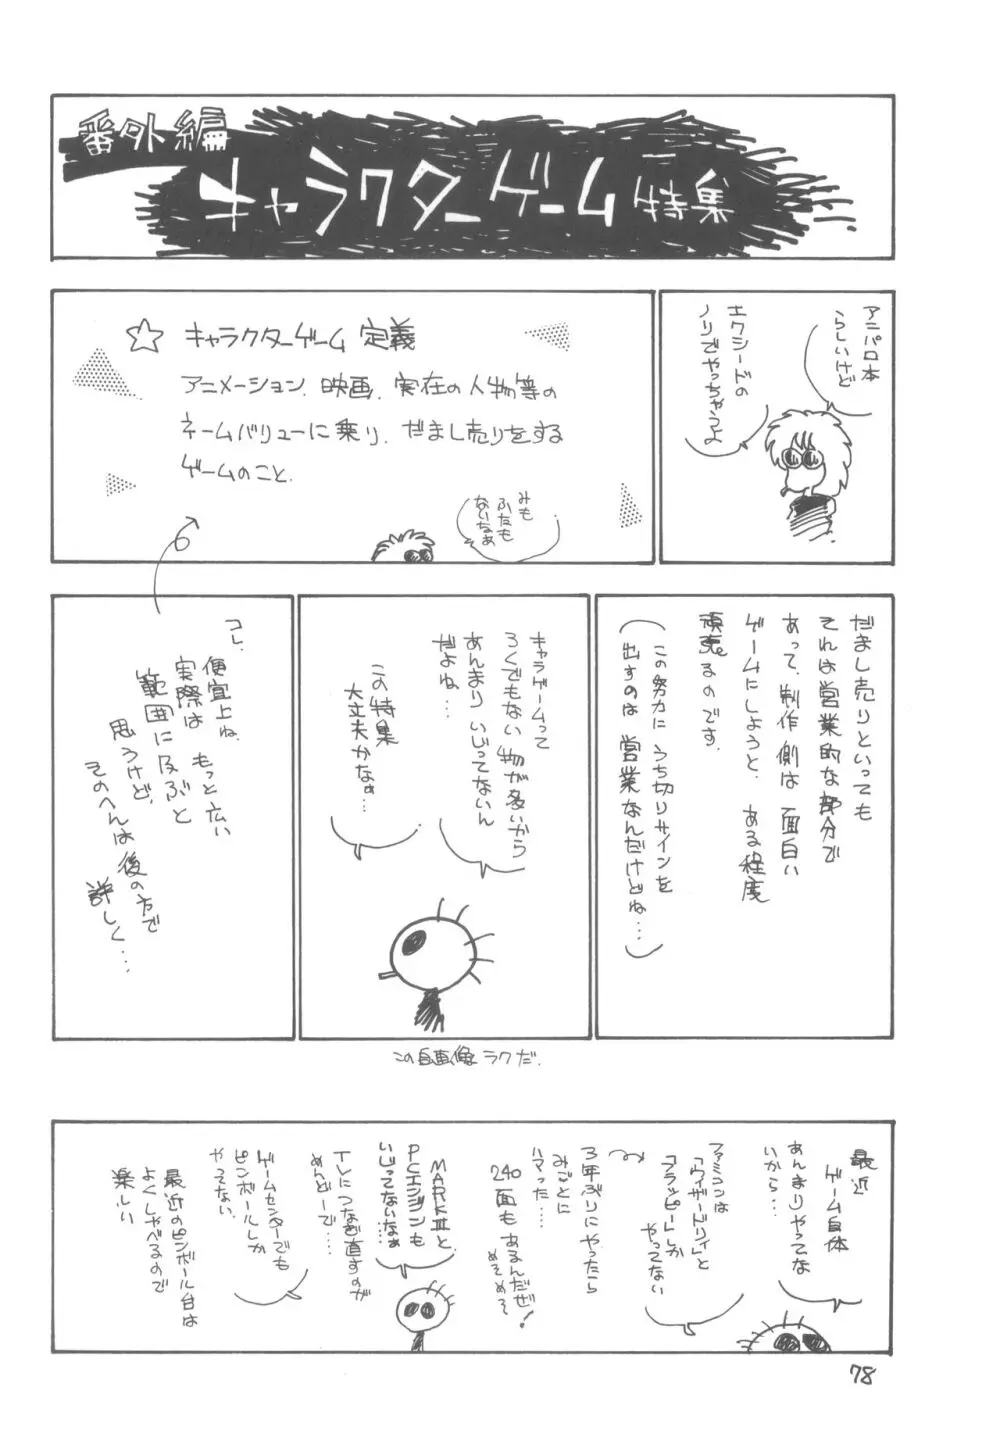 番外編
キャラクターゲーム特集
アニパロ本
らしいけど
エクシードの
ノリでやっちゃうよ
☆ キャラクターゲーム 定義
アニメーション、映画、実在の人物等の
ネームバリューに乗り、だまし売りをする
ゲームのこと。
みも
ふたも
ないなぁ
だまし売りといっても
それは営業的な部分で
あって、制作側は面白い
ゲームにしようと、ある程度
頑張るのです。
(この努力にうち切りサインを
出すのは営業なんだけどね…)
キャラゲームって
ろくでもない物が多いから
あんまりいじってないん
だよね…
この特集
大丈夫かなぁ…
コレ、
便宜上ね。もっと広い
実際は
範囲に及ぶと
思うけど、
そのへんは後の方で
詳しく…
この自画像ラクだ。
最近
ゲーム自体
あんまりやってな
いから…
ファミコンは
「ウィザードリィ」と
「フラッピー」しか
やってない
3年ぶりにやったら
みごとに
ハマった……
240面もあるんだぜ!
めそめそ
MARKⅢと
PCエンジンも
いじってないなぁ…
TVにつなぎ直すのが
めんどーで……
ゲームセンターでも
ピンボールしか
やってない。
最近のピンボール台は
よくしゃべるので
楽しい
78